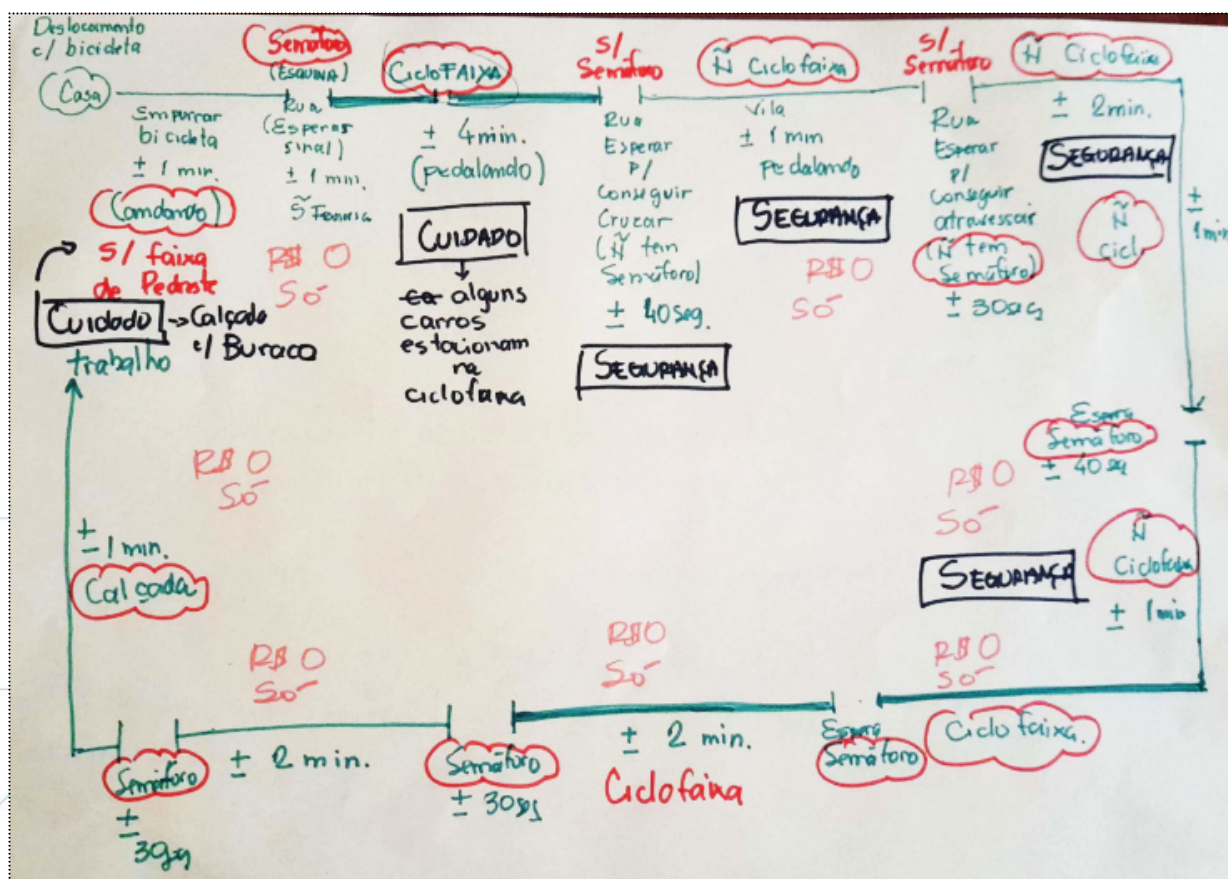 Deslocamento
c/ bicicleta
Casa
Empurrar
bicicleta
± 1 min.
(andando)
s/ faixa
de Pedestre
Cuidado → Calçada
c/ Buraco
trabalho
Semáforo
(ESQUINA)
Rua
(Esperar
sinal)
± 1 min.
R$ 0
Só
CicloFAIXA
± 4 min.
(pedalando)
CUIDADO
alguns
carros
estacionam
na
ciclofaixa
s/
Semáforo
Rua
Esperar
p/
Conseguir
Cruzar
(Ñ tem
Semáforo)
± 40 seg.
SEGURANÇA
Ñ Ciclofaixa
Vila
± 1 min
pedalando
SEGURANÇA
R$ 0
Só
s/
Semáforo
Rua
Esperar
p/
Conseguir
atravessar
(Ñ tem
Semáforo)
± 30seg
Ñ Ciclofaixa
± 2min.
SEGURANÇA
Ñ
cicl.
±
1 min
Espera
Semáforo
± 40 sg
R$ 0
Só
SEGURANÇA
Ñ
Ciclofaixa
± 1 min
R$ 0
Só
Ciclofaixa.
Espera
Semáforo
R$ 0
Só
± 2 min.
Ciclofaixa
Semáforo
± 30sg
R$ 0
Só
± 2 min.
Semáforo
±
30sg
R$ 0
Só
± 1 min.
Calçada